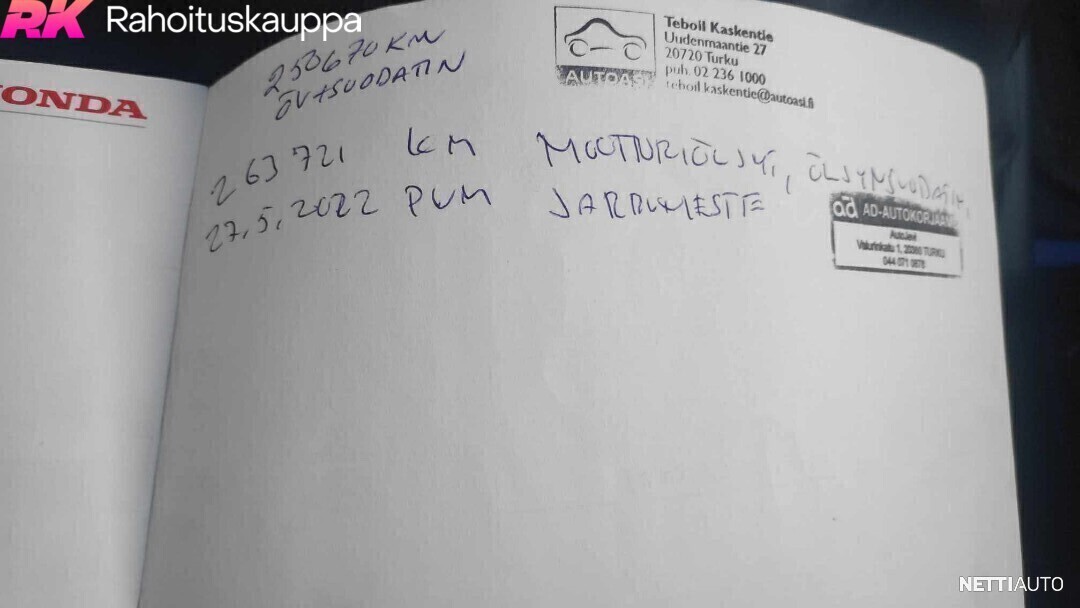 RK Rahoituskauppa
HONDA
250670 KM
ÖV+SUODATIN
AUTOASI
Teboil Kaskentie
Uudenmaantie 27
20720 Turku
puh. 02 236 1000
teboil.kaskentie@autoasi.fi
263721 KM MOOTTORIÖLJY, ÖLJYNSUODATIN,
27.5.2022 PVM JARRUNESTE
ad AD-AUTOKORJAAMO
044 071 0878
NETTIAUTO